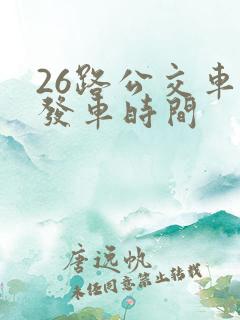 26路公交車
發車時間
唐远帆
未经同意禁止转载